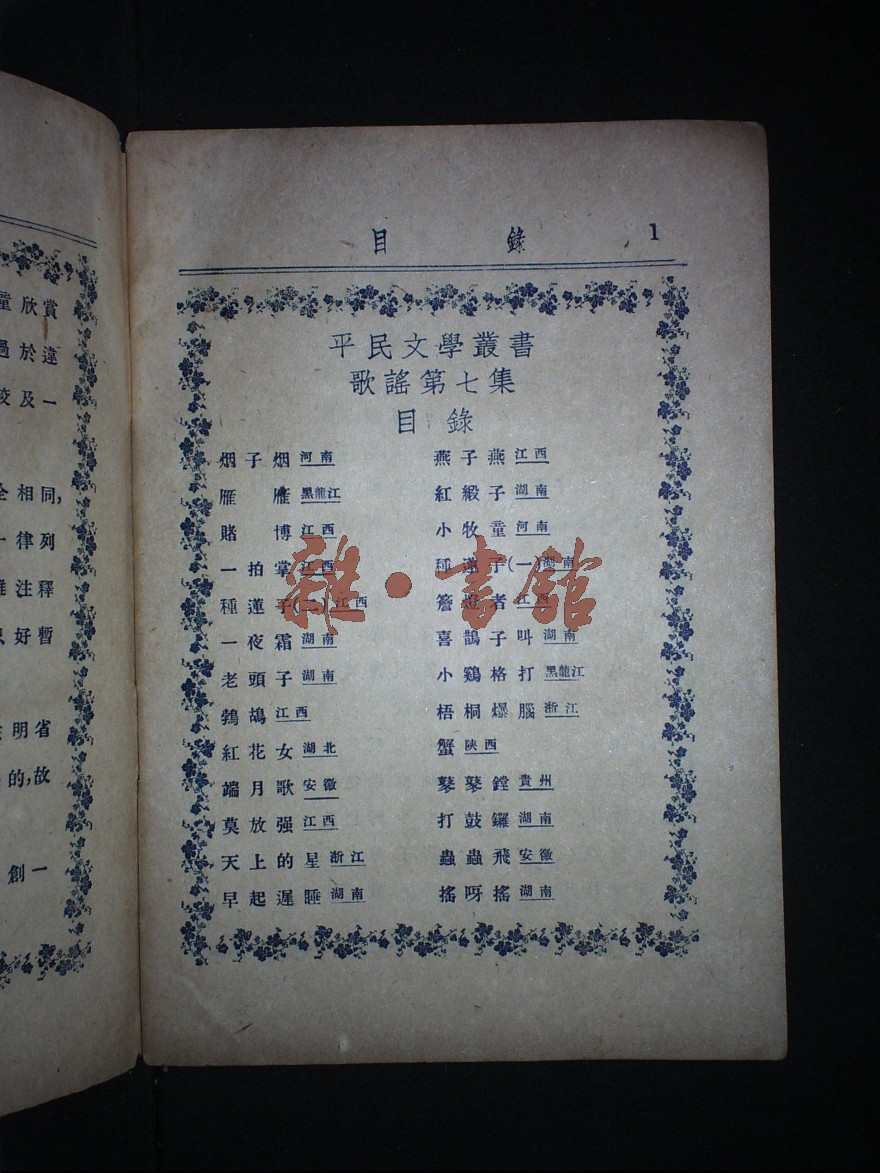 目錄 1
平民文學叢書
歌謠第七集
目錄
烟子烟 河南 燕子燕 江西
雁雁 黑龍江 紅緞子 湖南
賭博 江西 小牧童 河南
一拍掌 江西 種蓮子(一) 湖南
種蓮子(二) 江西 簷燈者 江西
一夜霜 湖南 喜鵲子叫 湖南
老頭子 湖南 小鷄格打 黑龍江
鵓鴣 江西 梧桐爆腦 浙江
紅花女 湖北 蟹 陝西
端月歌 安徽 鼕鼕鏜 貴州
莫放强 江西 打鼓鑼 湖南
天上的星 浙江 蟲蟲飛 安徽
早起遲睡 湖南 搖呀搖 湖南
雜·書館
童欣賞
過於違
校及一
全相同,
一律列
注釋
好暫
明省
的,故
創一